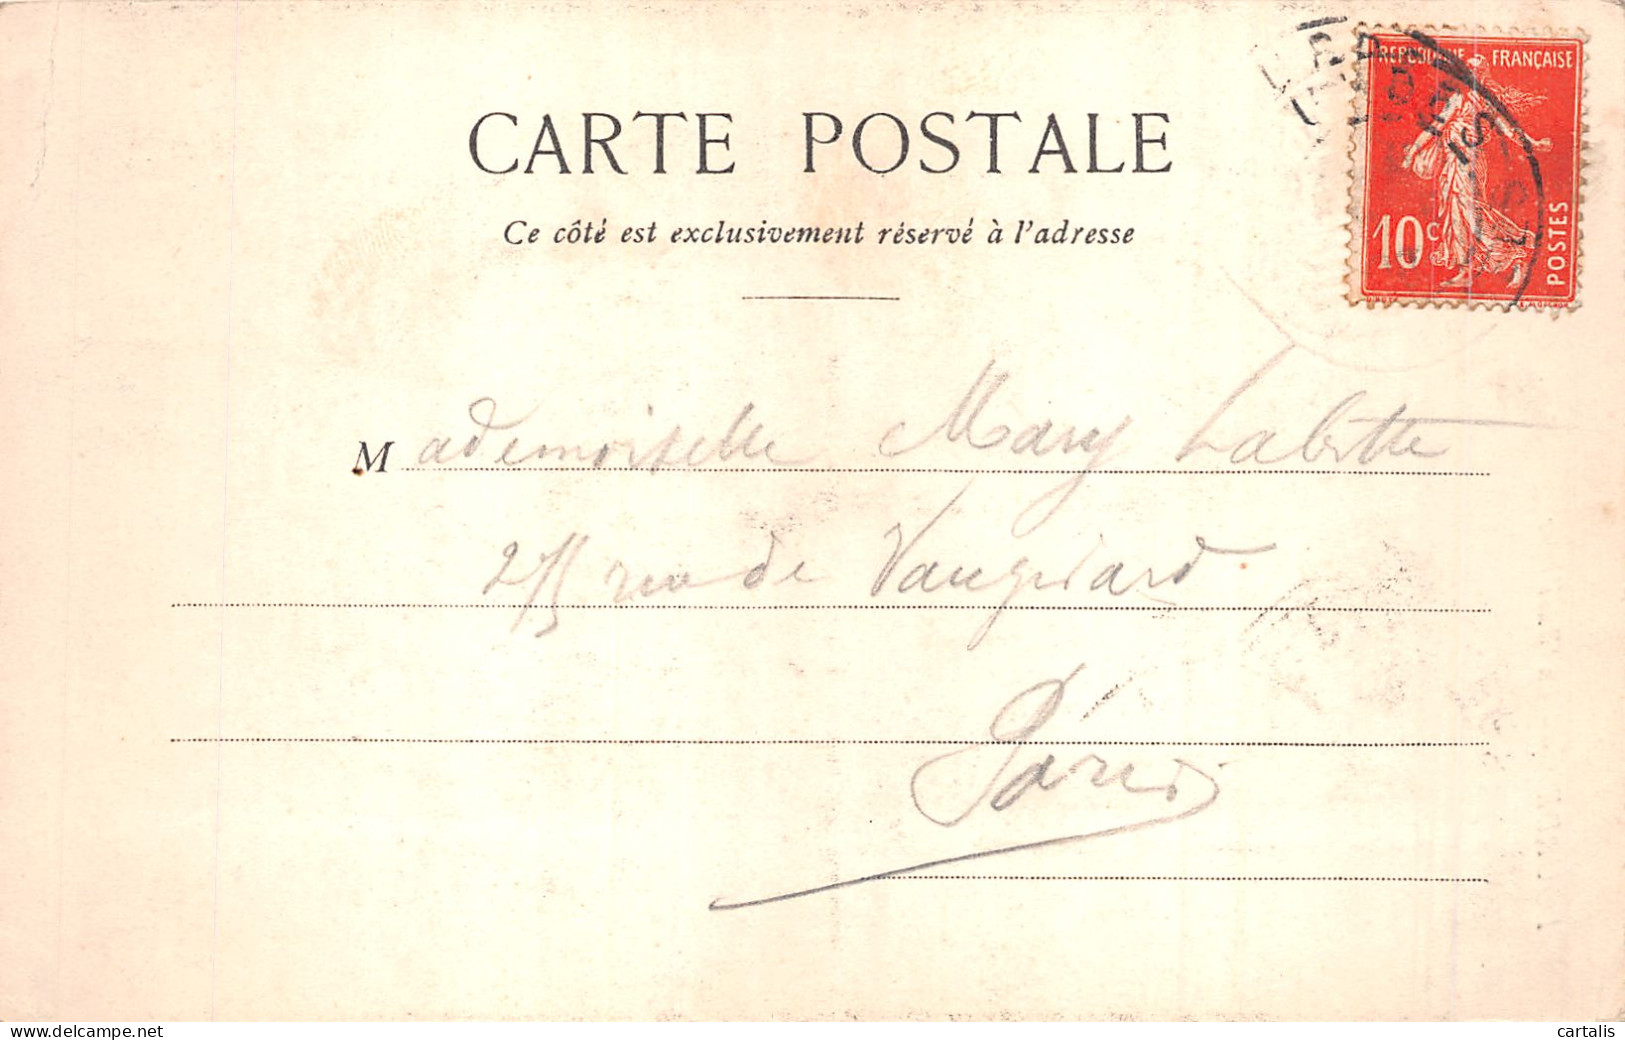 CARTE POSTALE
Ce côté est exclusivement réservé à l'adresse
REPUBLIQUE FRANÇAISE
10c
POSTES
Mademoiselle Mary Labitte
275 rue de Vaugirard
Paris
www.delcampe.net
cartalis